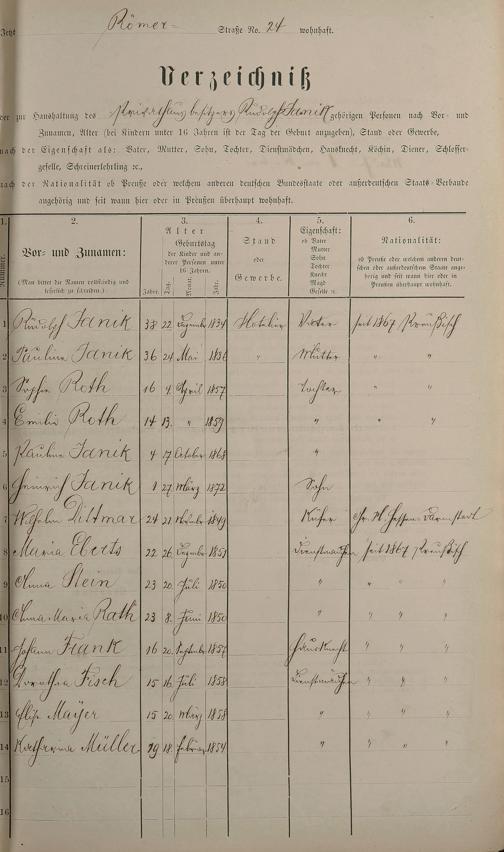 Jetzt Römer- Straße No. 24 wohnhaft.
Verzeichniß
der zur Haushaltung des Privathausbesitzers Rudolf Janik gehörigen Personen nach Vor- und
Zunamen, Alter (bei Kindern unter 16 Jahren ist der Tag der Geburt anzugeben), Stand oder Gewerbe,
nach der Eigenschaft als: Vater, Mutter, Sohn, Tochter, Dienstmädchen, Hausknecht, Köchin, Diener, Schlosser-
geselle, Schreinerlehrling ꝛc.,
nach der Nationalität ob Preuße oder welchem anderen deutschen Bundesstaate oder außerdeutschen Staats-Verbande
angehörig und seit wann hier oder in Preußen überhaupt wohnhaft.
1. 2. 3. 4. 5. 6.
Nummer. Vor- und Zunamen: (Man bittet die Namen vollständig und leserlich zu schreiben.)
Alter Geburtstag der Kinder und anderer Personen unter 16 Jahren. Jahre. Tag. Monat. Jahr.
Stand oder Gewerbe.
Eigenschaft: ob Vater Mutter Sohn Tochter Knecht Magd Geselle ꝛc.
Nationalität: ob Preuße oder welchem anderen deutschen oder außerdeutschen Staate angehörig und seit wann hier oder in Preußen überhaupt wohnhaft.
1 Rudolf Janik 38 22. Dezember 1834 Hotelier Vater seit 1867 Preußisch
2 Paulina Janik 36 24. Mai 1836 " Mutter " "
3 Sophie Roth 16 4. April 1857 Tochter " "
4 Emilie Roth 14 13. " 1859 " " "
5 Paulina Janik 4 17 October 1868 "
6 Heinrich Janik 1 27. März 1872 Sohn
7 Wilhelm Dittmar 24 21 1849 Küfer Gr. H. Hessen Darmstadt
8 Maria Eberts 22 26. Dezember 1851 Dienstmädchen seit 1867 Preußisch
9 Anna Stein 23 20. Juli 1850 " " "
10 Anna Maria Rath 23 8. Juni 1850 " " " "
11 Johann Frank 16 20. September 1857 Hausknecht " " "
12 Dorothea Fisch 15 16. Juli 1858 Dienstmädchen " " "
13 Elise Mayer 15 20. März 1858 " " " "
14 Katharina Müller 19 18. Februar 1854 " " " "
15
16